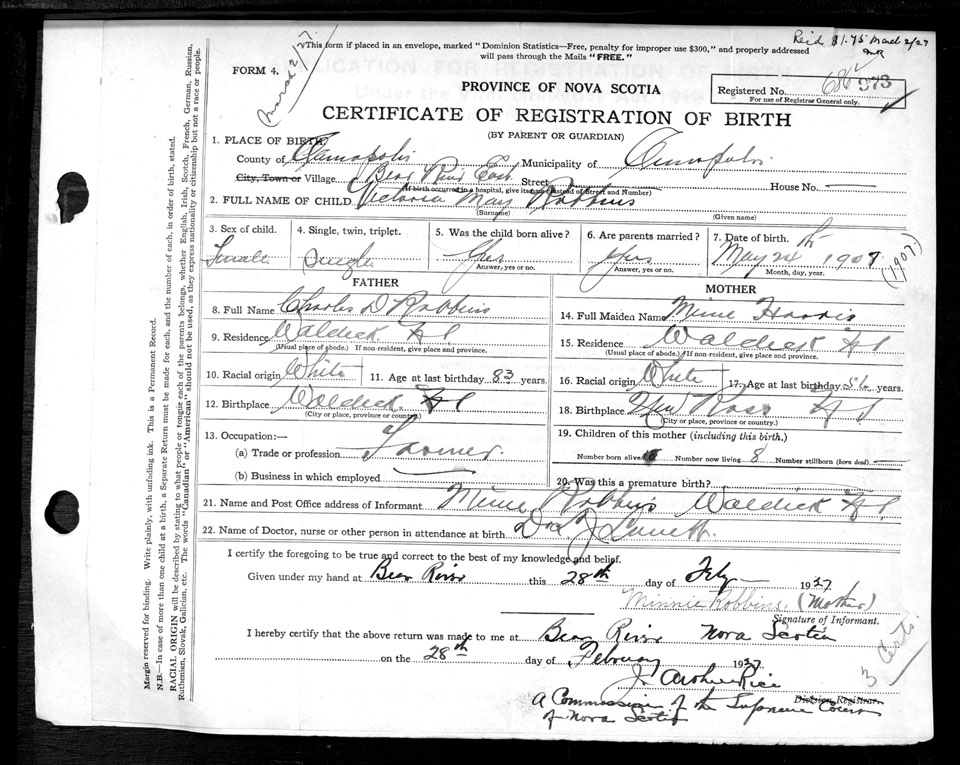 Rec'd $1.75 March 2/27
March 2/17
This form if placed in an envelope, marked "Dominion Statistics—Free, penalty for improper use $300," and properly addressed
will pass through the Mails "FREE."
FORM 4.
PROVINCE OF NOVA SCOTIA
Registered No. 373
For use of Registrar General only.
CERTIFICATE OF REGISTRATION OF BIRTH
(BY PARENT OR GUARDIAN)
1. PLACE OF BIRTH
County of Annapolis Municipality of Annapolis
City, Town or Village Bear River East Street House No.
(If birth occurred in a hospital, give its name instead of Street and Number)
2. FULL NAME OF CHILD Victoria May Robbins
(Surname) (Given name)
3. Sex of child. 4. Single, twin, triplet. 5. Was the child born alive? 6. Are parents married? 7. Date of birth.
Female Single Yes Yes May 24th 1907 (1907)
Answer, yes or no. Answer, yes or no. Month, day, year.
FATHER MOTHER
8. Full Name Charles D Robbins
14. Full Maiden Name Minnie Harris
9. Residence Waldeck N S
(Usual place of abode.) If non-resident, give place and province.
15. Residence Waldeck N S
(Usual place of abode.) If non-resident, give place and province.
10. Racial origin White 11. Age at last birthday 83 years.
16. Racial origin White 17. Age at last birthday 56 years.
12. Birthplace Waldeck N S
(City or place, province or country)
18. Birthplace New Ross N S
(City or place, province or country.)
13. Occupation:—
(a) Trade or profession Farmer
(b) Business in which employed
19. Children of this mother (including this birth.)
Number born alive Number now living 8 Number stillborn (born dead)
20. Was this a premature birth?
21. Name and Post Office address of Informant Minnie Robbins Waldeck N S
22. Name of Doctor, nurse or other person in attendance at birth Dr
I certify the foregoing to be true and correct to the best of my knowledge and belief.
Given under my hand at Bear River this 28th day of Feby 1927
Minnie Robbins (Mother)
Signature of Informant.
I hereby certify that the above return was made to me at Bear River Nova Scotia
on the 28th day of February 1927.
J. Arthur Rice
Division Registrar.
A Commission of the Supreme Court
of Nova Scotia
3 Certs.
Margin reserved for binding. Write plainly, with unfading ink. This is a Permanent Record.
N.B.—In case of more than one child at a birth, a Separate Return must be made for each, and the number of each, in order of birth, stated.
RACIAL ORIGIN will be described by stating to what people or tongue each of the parents belongs, whether English, Irish, Scotch, French, German, Russian,
Ruthenian, Slovak, Galician, etc. The words "Canadian" or "American" should not be used, as they express nationality or citizenship but not a race or people.